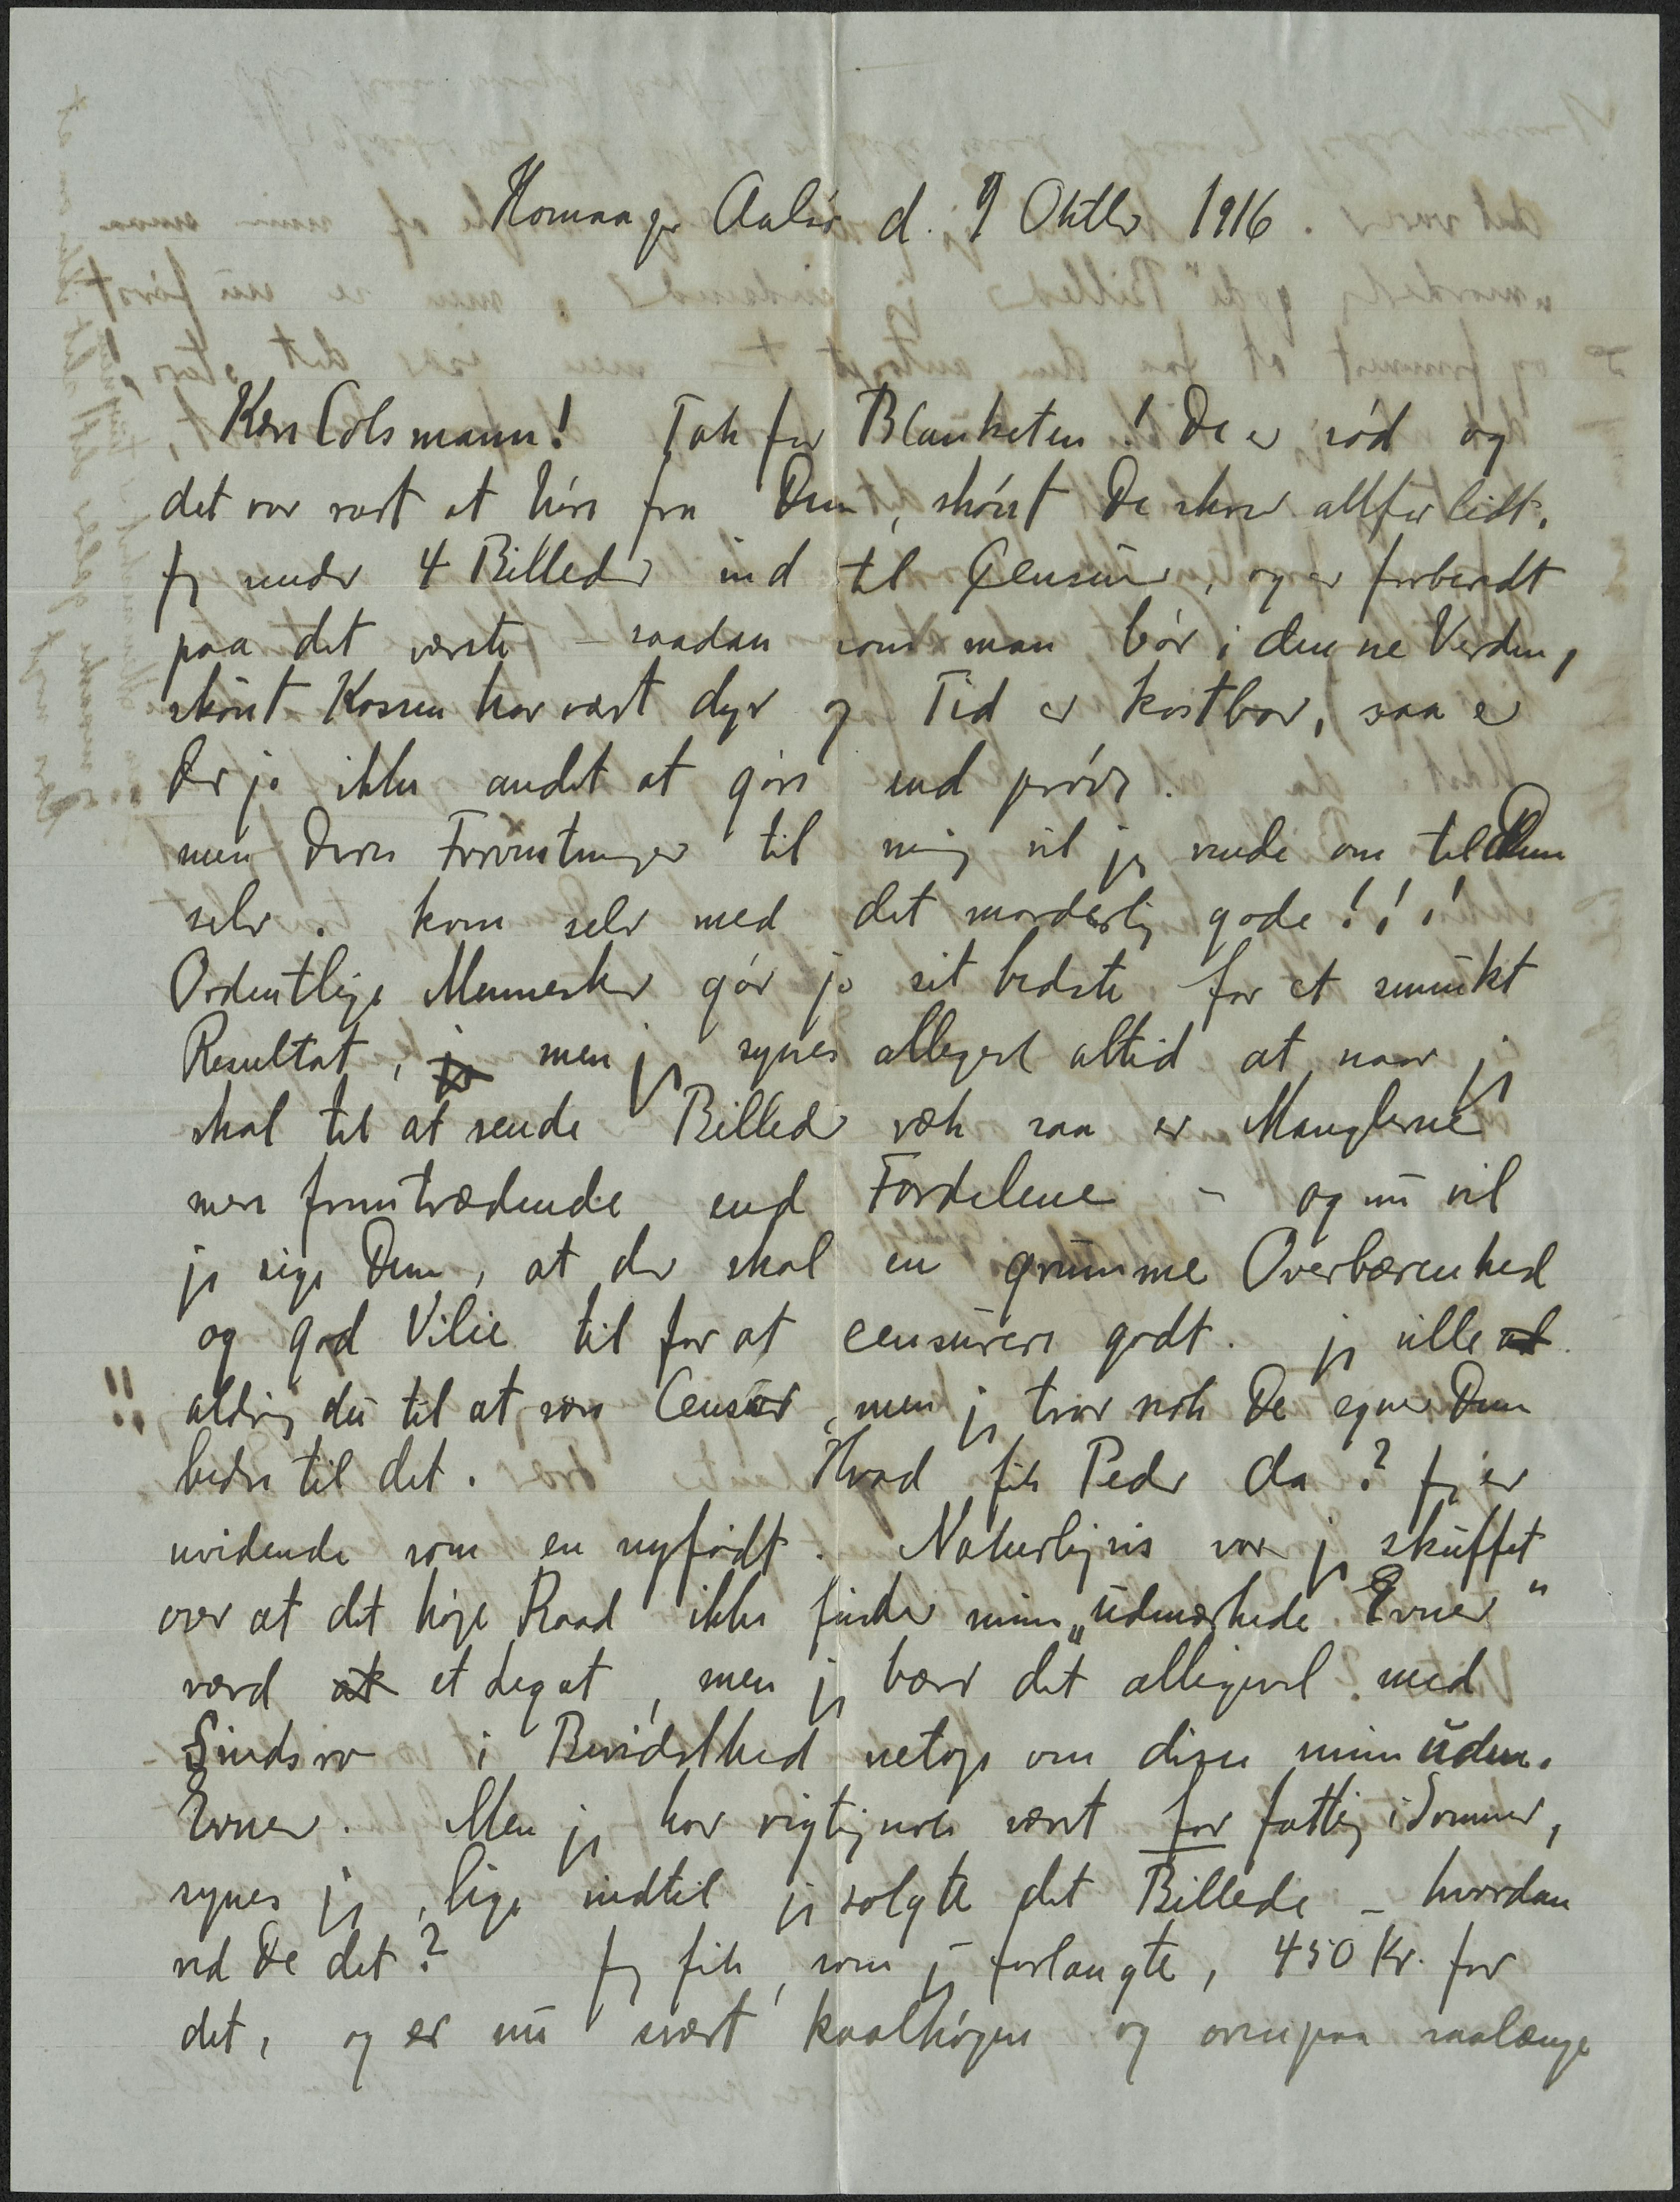 Komaager Aalsø d. 9 Oktbr 1916.
Kære Colsmann! Tak for Blanketen! De er sød og
det var rart at høre fra Dem, skønt De skrev altfor lidt.
Jeg sender 4 Billeder ind til Censur, og er forberedt
paa det værste – saadan som man bør i denne Verden,
skønt Kassen har vært dyr og Tid er kostbar, saa er
der jo ikke andet at gøre end prøve.
men Deres Forventninger til mig vil jeg vende om til Dem
selv. kom selv med det morderlig gode!!!
Ordentlige Mennesker gør jo sit bedste for et smukt
Resultat, je men jeg synes alligevel altid at naar jeg
skal til at sende Billeder væk saa er Manglerne
mere fremtrædende end Fordelene – og nu vil
jeg sige Dem, at der skal en grumme Overbærenhed
og god Vilie til for at censurere godt. jeg ville al
!! aldrig du til at være Censor, men jeg tror nok De egner Dem
bedre til det. Hvad fik Peder da? Jeg er
uvidende som en nyfødt. Naturligvis var jeg skuffet
over at det høje Raad ikke finder mine „udmærkede Evner"
værd at et Legat, men jeg bærer det alligevel med
Sindsro i Bevidsthed netop om disse mine udm.
Evner. Men jeg har rigtignok vært for fattig i Sommer,
synes jeg, lige indtil jeg solgte det Billede – hvordan
ved De det? Jeg fik, som jeg forlangte, 450 Kr. for
det, og er nu svært kaalhøgen og ovenpaa saalænge